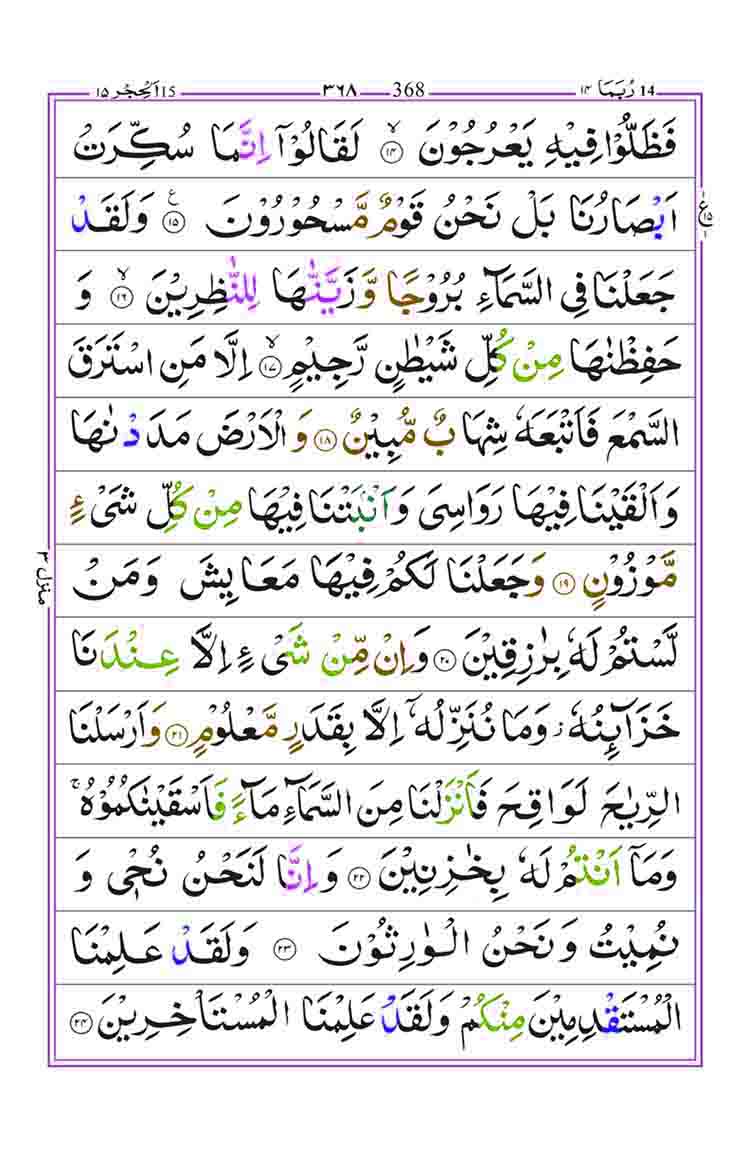 ١٤ رُبَمَا 14 ٣٦٨ 368 15 اَلْحِجْر ١٥
فَظَلُّوْا فِيْهِ يَعْرُجُوْنَ ۙ‏﴿۱۴﴾ لَقَالُوْۤا اِنَّمَا سُكِّرَتْ
اَبْصَارُنَا بَلْ نَحْنُ قَوْمٌ مَّسْحُوْرُوْنَ ﴿۱۵﴾ ع وَلَقَدْ
ع ١٥
جَعَلْنَا فِى السَّمَآءِ بُرُوْجًا وَّ زَيَّنّٰهَا لِلنّٰظِرِيْنَ ۙ﴿۱۶﴾ وَ
حَفِظْنٰهَا مِنْ كُلِّ شَيْطٰنٍ رَّجِيْمٍ ۙ﴿۱۷﴾ اِلَّا مَنِ اسْتَرَقَ
السَّمْعَ فَاَتْبَعَهٗ شِهَابٌ مُّبِيْنٌ ﴿۱۸﴾ وَ الْاَرْضَ مَدَدْنٰهَا
وَاَلْقَيْنَا فِيْهَا رَوَاسِىَ وَاَنْۢبَتْنَا فِيْهَا مِنْ كُلِّ شَىْءٍ
مَّوْزُوْنٍ ﴿۱۹﴾ وَجَعَلْنَا لَكُمْ فِيْهَا مَعَايِشَ وَمَنْ
منزل ٣
لَّسْتُمْ لَهٗ بِرٰزِقِيْنَ ﴿۲۰﴾ وَاِنْ مِّنْ شَىْءٍ اِلَّا عِنْدَنَا
خَزَآئِنُهٗ ز وَمَا نُنَزِّلُهٗۤ اِلَّا بِقَدَرٍ مَّعْلُوْمٍ ﴿۲۱﴾ وَاَرْسَلْنَا
الرِّيٰحَ لَوَاقِحَ فَاَنْزَلْنَا مِنَ السَّمَآءِ مَآءً فَاَسْقَيْنٰكُمُوْهُ ۚ
وَمَاۤ اَنْتُمْ لَهٗ بِخٰزِنِيْنَ ﴿۲۲﴾ وَ اِنَّا لَنَحْنُ نُحْىٖ وَ
نُمِيْتُ وَنَحْنُ الْوٰرِثُوْنَ ﴿۲۳﴾ وَلَقَدْ عَلِمْنَا
الْمُسْتَقْدِمِيْنَ مِنْكُمْ وَلَقَدْ عَلِمْنَا الْمُسْتَاْخِرِيْنَ ﴿۲۴﴾